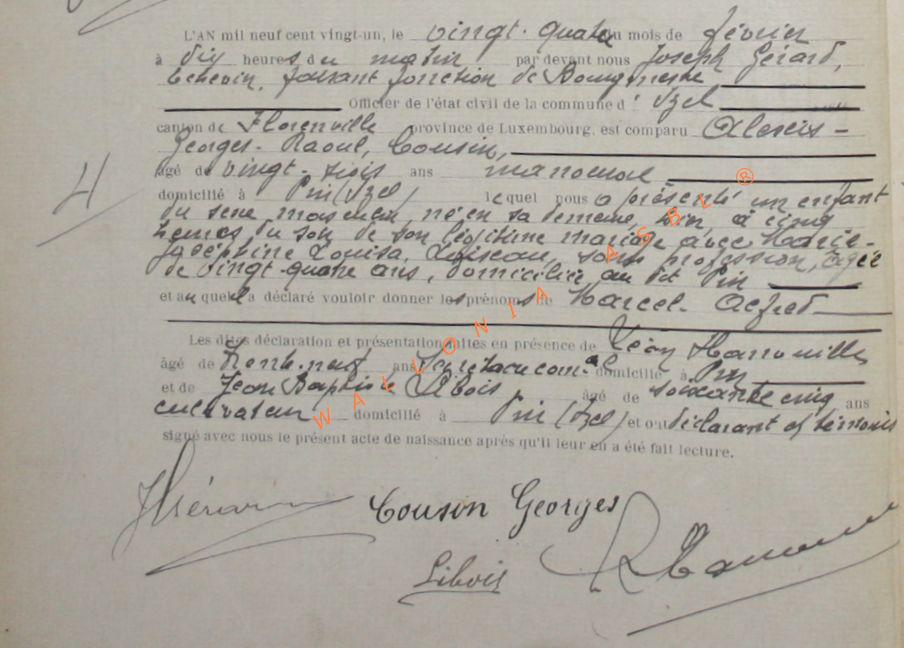 L'AN mil neuf cent vingt-un, le vingt-quatre du mois de février
à dix heures du matin par devant nous Joseph Gérard,
Echevin, faisant fonction de Bourgmestre
Officier de l'état civil de la commune d'Izel
canton de Florenville province de Luxembourg, est comparu Alexis-
Georges-Raoul, Couson,
âgé de vingt-trois ans manoeuvre
domicilié à Pin (Izel), lequel nous a présenté un enfant
du sexe masculin, né en sa demeure, à cinq
heures du soir de son légitime mariage avec Marie-
Joséphine Louisa, sans profession, âgée
de vingt-quatre ans, domiciliée au dit Pin
et auquel il a déclaré vouloir donner les prénoms de Marcel-Alfred
Les dites déclaration et présentation faites en présence de Léon
âgé de Trente-neuf ans Secrétaire com-al domicilié à Pin
et de Jean Baptiste Libois âgé de soixante cinq ans
cultivateur domicilié à Pin (Izel) et ont déclarant et témoins
signé avec nous le présent acte de naissance après qu'il leur en a été fait lecture.
4
WALLONIA ASBL ®
JGérard
Couson Georges
Libois